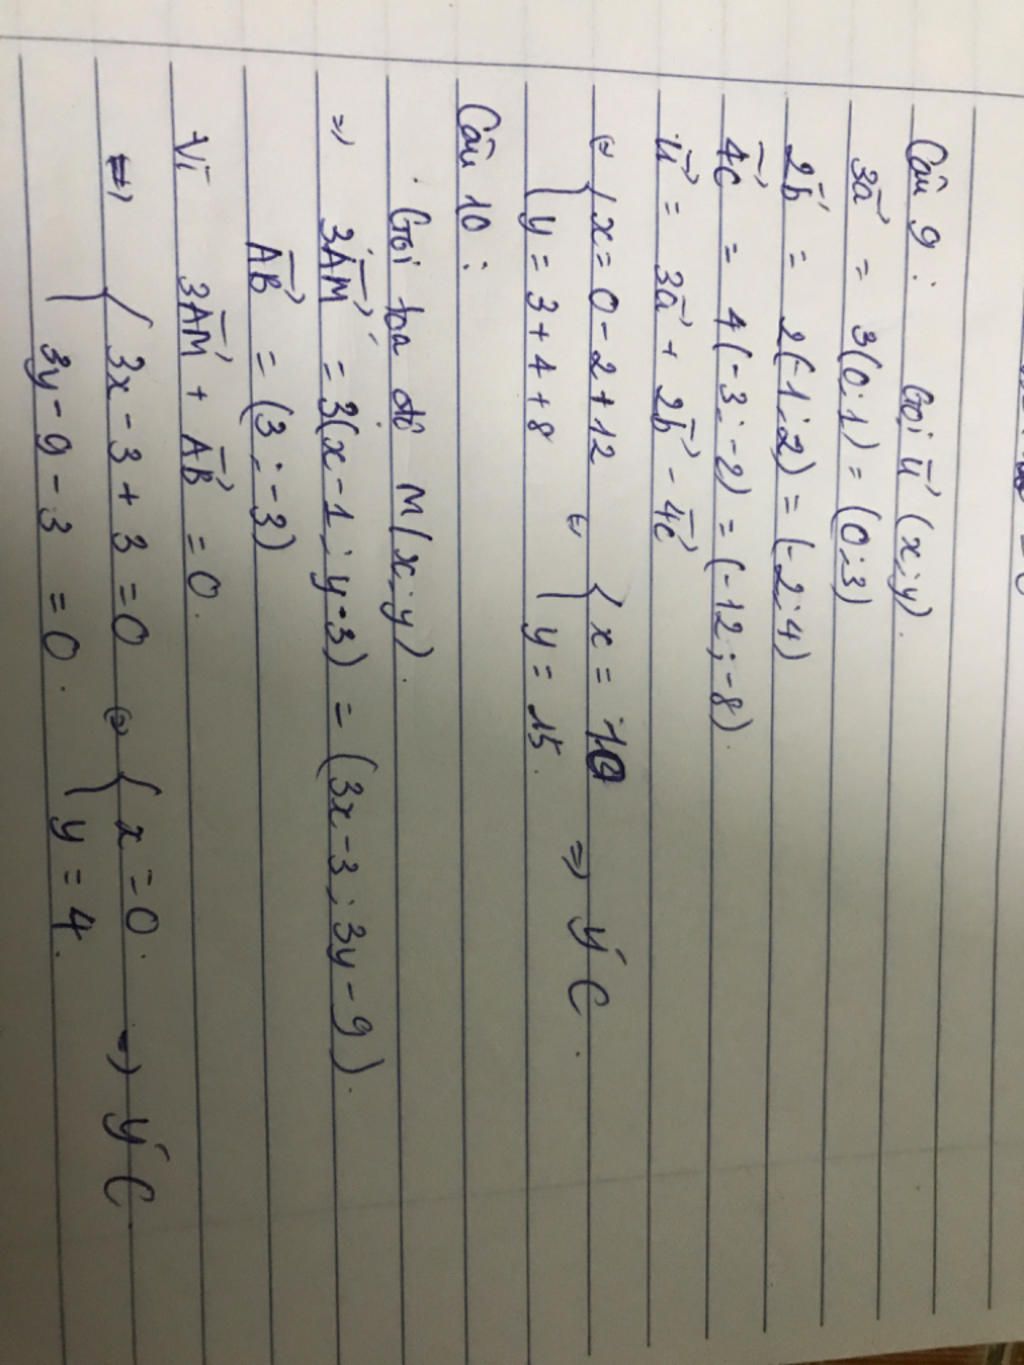 Câu 9: Gọi u⃗ (x;y).
3a⃗ = 3(0;1) = (0;3)
2b⃗ = 2(-1;2) = (-2;4)
4c⃗ = 4(-3;-2) = (-12;-8).
u⃗ = 3a⃗ + 2b⃗ - 4c⃗
⇔ { x = 0 - 2 + 12 ⇔ { x = 10 ⇒ ý C.
y = 3 + 4 + 8 y = 15.
Câu 10:
Gọi tọa độ M(x;y).
⇒ 3AM⃗ = 3(x-1; y-3) = (3x-3; 3y-9).
AB⃗ = (3;-3)
Vì 3AM⃗ + AB⃗ = 0.
⇒ { 3x - 3 + 3 = 0 ⇔ { x = 0. ⇒ ý C.
3y - 9 - 3 = 0. y = 4.